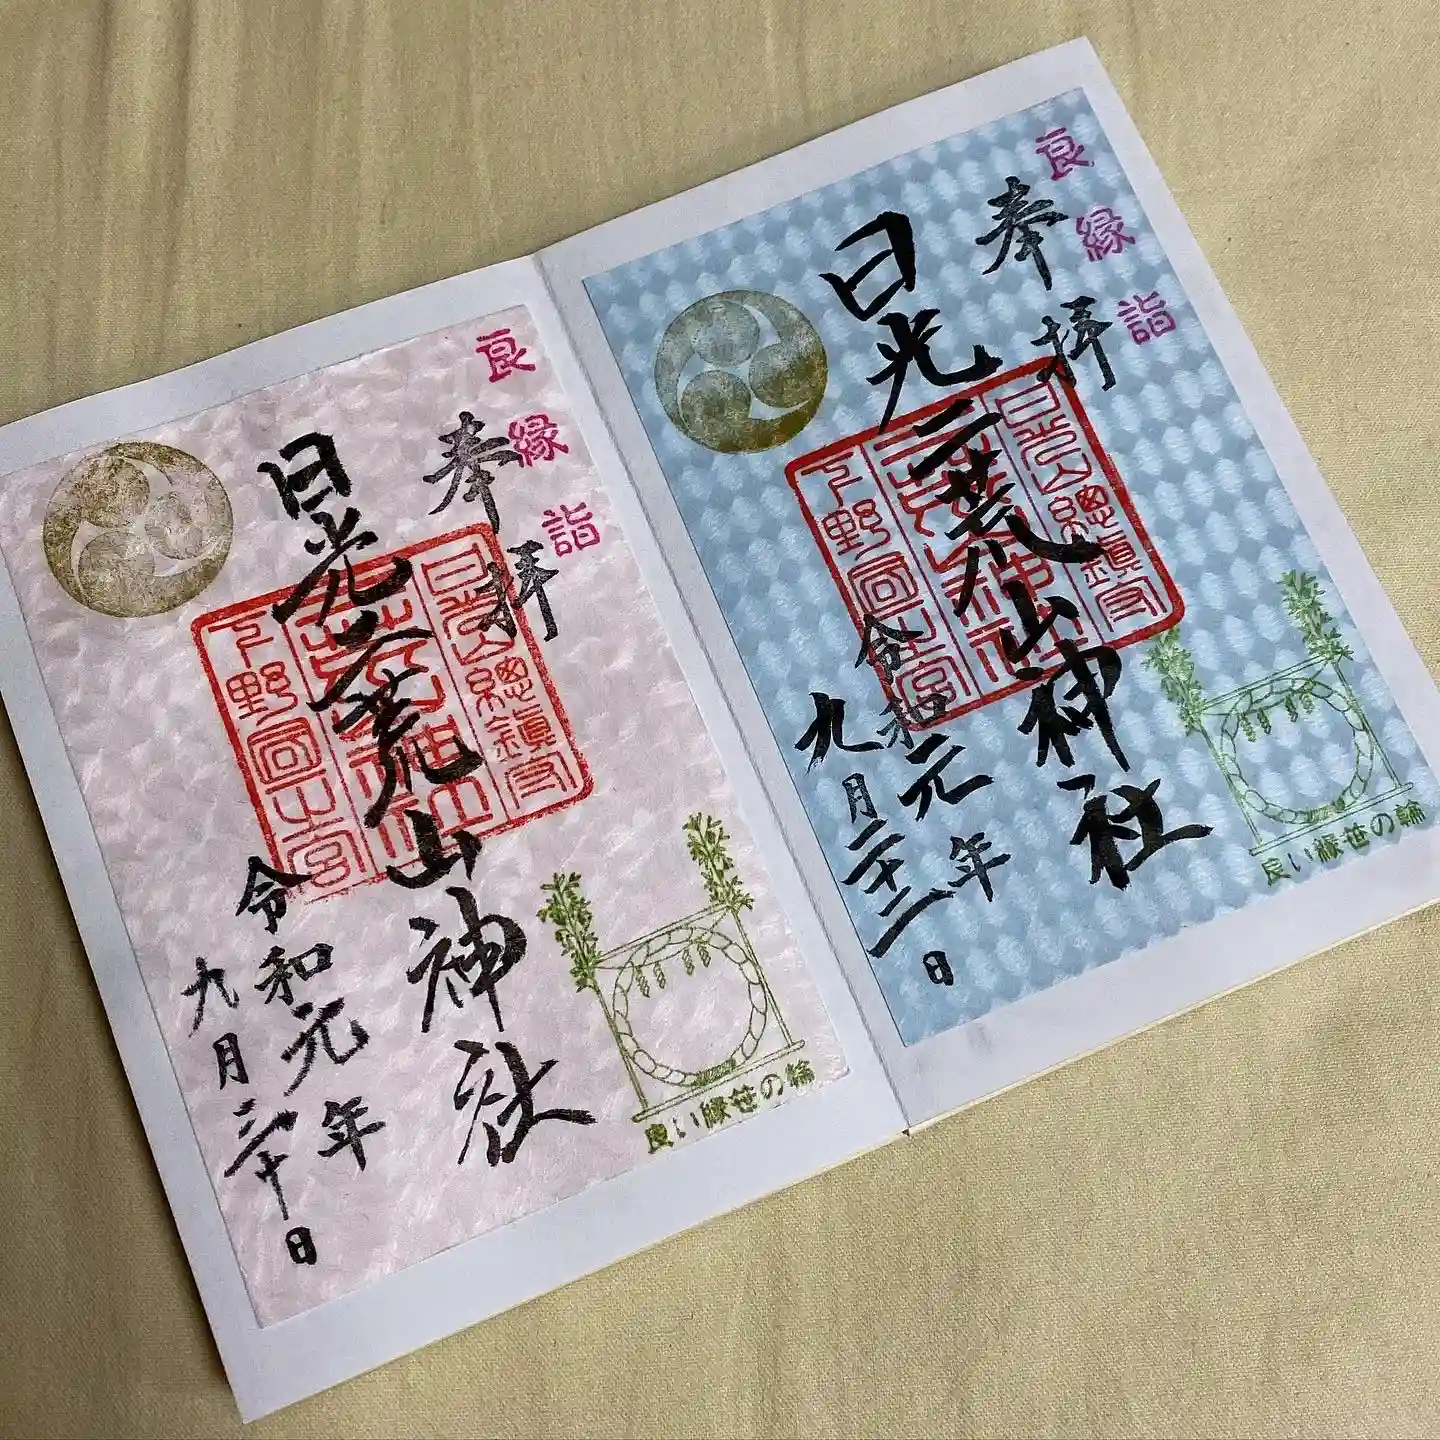 良縁詣
奉拝
日光二荒山神社
日光総鎮守
二荒山神社
下野国一宮
令和元年
九月二十二日
良い縁笹の輪
良縁詣
奉拝
日光二荒山神社
日光総鎮守
二荒山神社
下野国一宮
令和元年
九月三十日
良い縁笹の輪